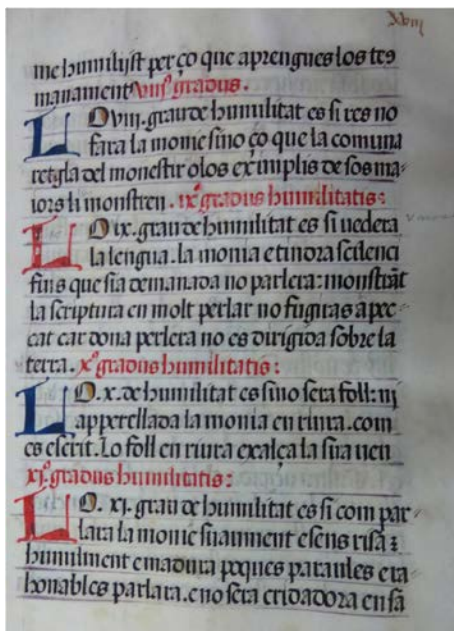 xviii
me humilijst per ço que aprengues los teus
manament viijs gradus.
LO viij. grau de humilitat es si res no
fara la monie sino ço que la comuna
retgla del monestir o los eximplis de sos ma-
iors li monstren. ixs gradus humilitatis:
LO ix. grau de humilitat es si uedera
la lengua. la monia e tindra scilenci
fins que sia demanada no parlera: monstrāt
la scriptura en molt perlar no fugiras a pec-
cat car dona perlera no es dirigida sobre la
terra. xs gradus humilitatis:
LO. x. de humilitat es si no sera foll: ni
apperellada la monia en riura. com
es escrit. Lo foll en riura exalça la sua ueu
xjs. gradus humilitatis:
LO. xj. grau de humilitat es si com par-
lara la monie suaument e sens risa:
humilment e madura poques paraules e ra-
honables parlara. e no sera cridadora en sa